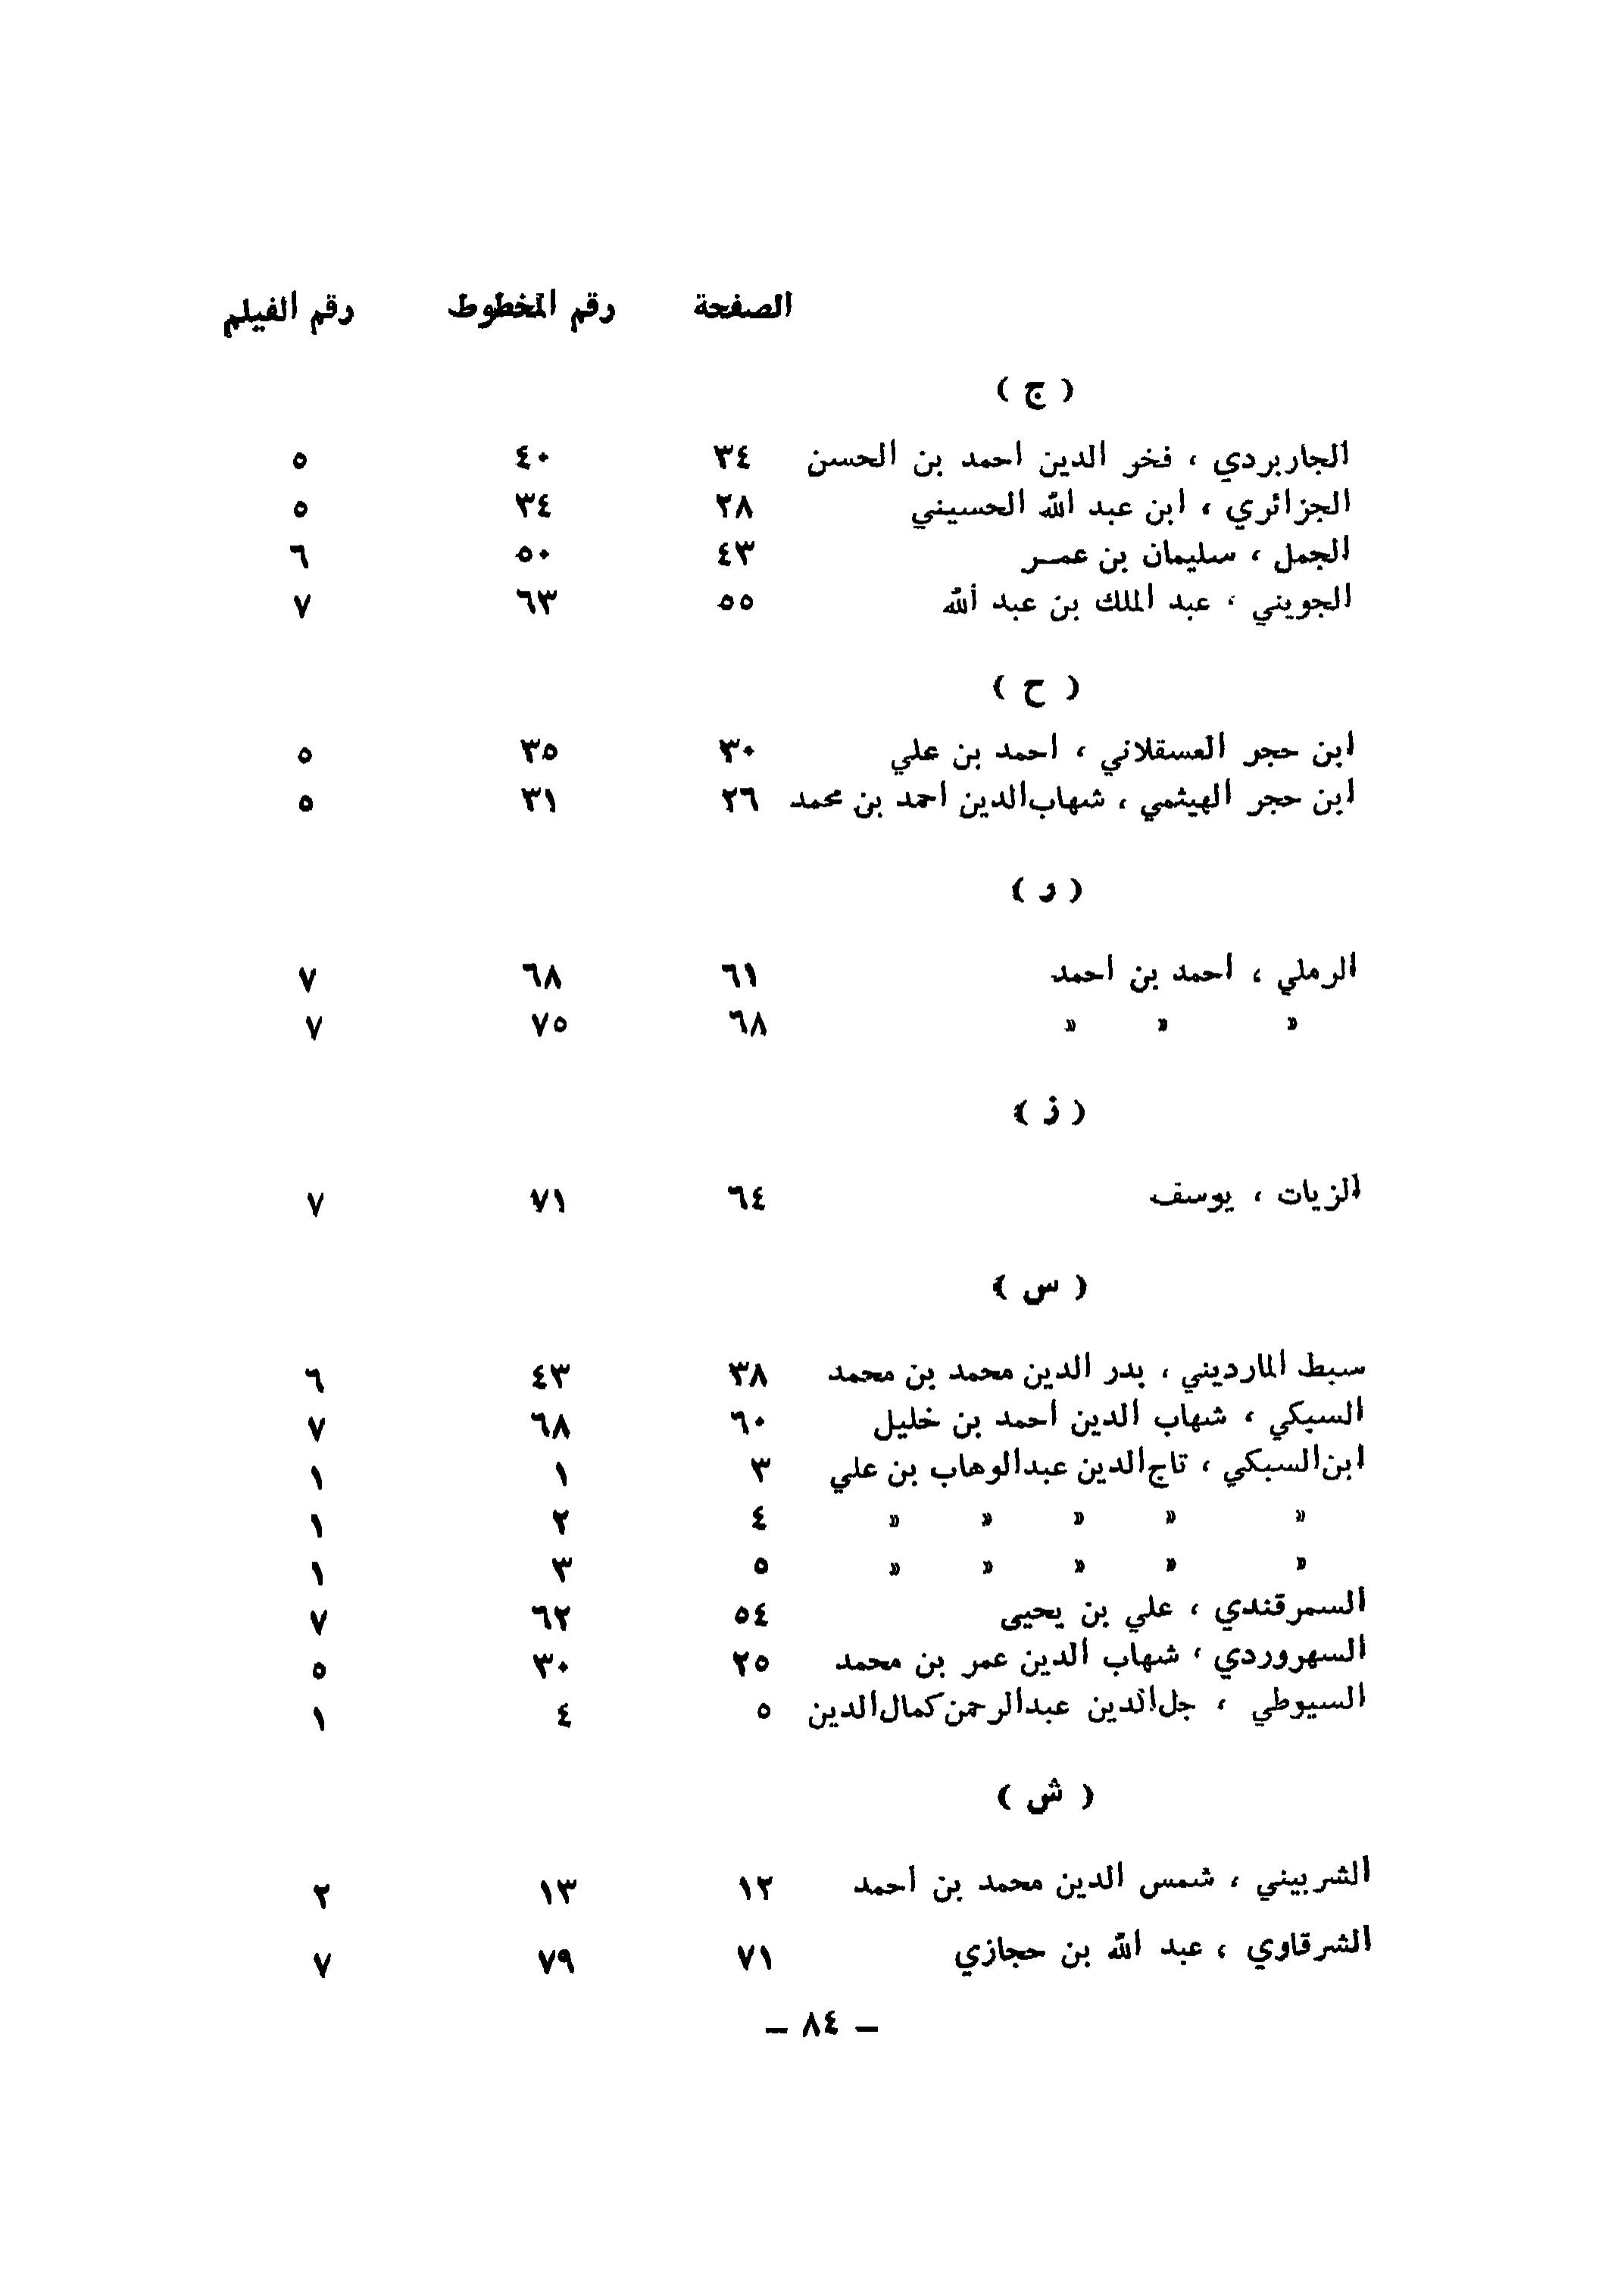 الصفحة رقم المخطوط رقم الفيلم
( ج )
الجاربردي ، فخر الدين احمد بن الحسن ٣٤ ٤٠ ٥
الجزائري ، ابن عبد الله الحسيني ٢٨ ٣٤ ٥
الجمل ، سليمان بن عمر ٤٣ ٥٠ ٦
الجويني ، عبد الملك بن عبد الله ٥٥ ٦٣ ٧
( ح )
ابن حجر العسقلاني ، احمد بن علي ٣٠ ٣٥ ٥
ابن حجر الهيثمي ، شهاب الدين احمد بن محمد ٢٦ ٣١ ٥
( ر )
الرملي ، احمد بن احمد ٦١ ٦٨ ٧
» » » ٦٨ ٧٥ ٧
( ز )
الزيات ، يوسف ٦٤ ٧١ ٧
( س )
سبط المارديني ، بدر الدين محمد بن محمد ٣٨ ٤٣ ٦
السبكي ، شهاب الدين احمد بن خليل ٦٠ ٦٨ ٧
ابن السبكي ، تاج الدين عبد الوهاب بن علي ٣ ١ ١
» » » » » ٤ ٢ ١
» » » » » ٥ ٣ ١
السمرقندي ، علي بن يحيى ٥٤ ٦٢ ٧
السهروردي ، شهاب الدين عمر بن محمد ٢٥ ٣٠ ٥
السيوطي ، جل الدين عبد الرحمن كمال الدين ٥ ٤ ١
( ش )
الشربيني ، شمس الدين محمد بن احمد ١٢ ١٣ ٢
الشرقاوي ، عبد الله بن حجازي ٧١ ٧٩ ٧
– ٨٤ –